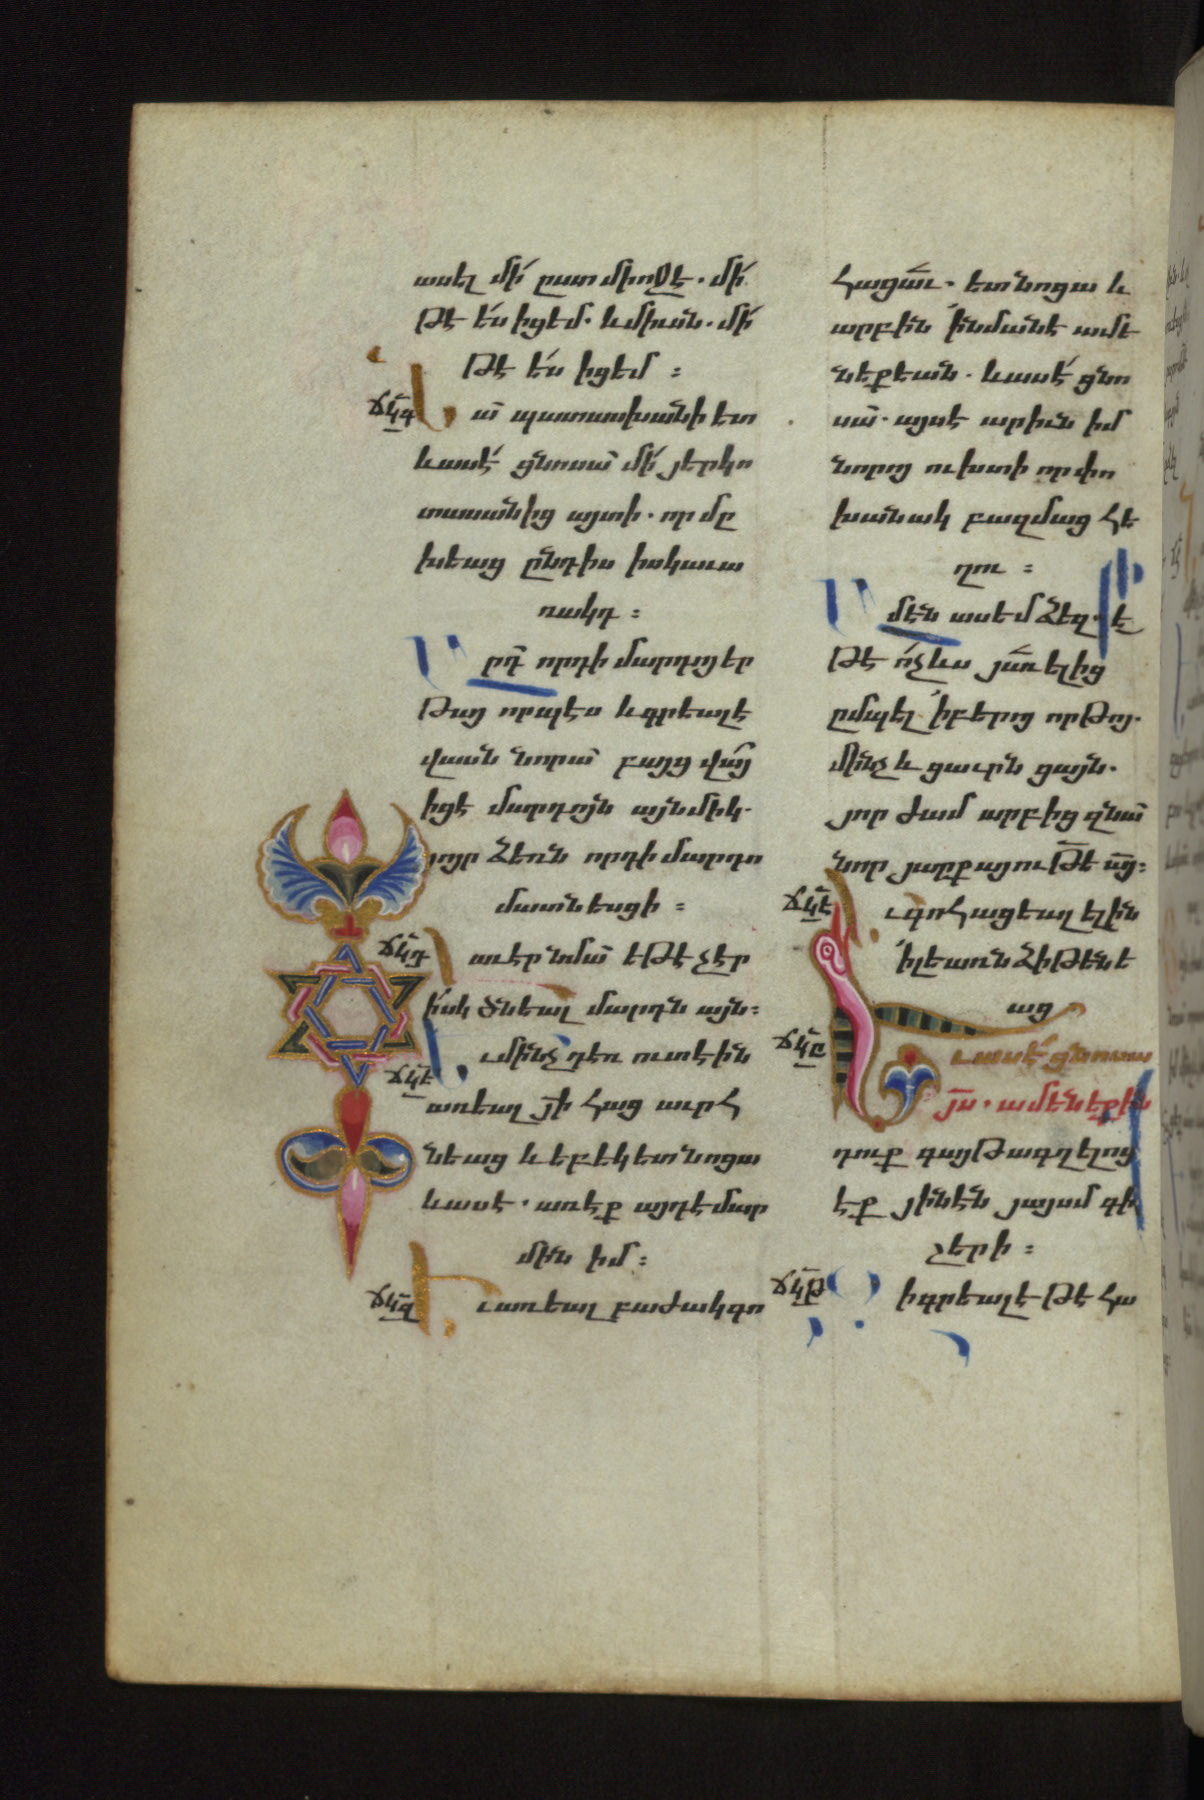 ասել մի՛ ըստ միոջէ. մի՛
թէ ե՛ս իցեմ. և միւսն. մի՛
թէ ե՛ս իցեմ :
ՃԿԳ Ն ա՞ պատասխանի ետ
և ասէ՛ ցնոսա՞ մի՛ յերկո
տասանից այտի. որ մը
խեաց ընդիս ի սկաւա
ռակդ :
Ո րդ՞ որդի մարդոյ եր
թայ որպէս և գրեալ է
վասն նորա՞ բայց վա՜յ
իցէ մարդոյն այնմիկ.
յոյր ձեռն որդի մարդո
մատնեսցի :
ՃԿԴ Լ աւ էր նմա՞ եթէ չէր
ի՛սկ ծնեալ մարդն այն :
ՃԿԵ Ե ւ մինչ դեռ ուտէին
առեալ յ՞ի հաց աւրհ
նեաց և եբեկ ետ նոցա
և ասէ. առէք այդ է մար
մին իմ :
ՃԿԶ Ե ւ առեալ բաժակ գո
հացա՜ւ. ետ նոցա և
արբին ՛ի նմանէ ամե
նեքեան. և ասէ՛ ցնո
սա՞. այս է արիւն իմ
նորոյ ուխտի որ փո
խանակ բազմաց հե
ղու :
Ա մէն ասեմ ձեզ. ե
թէ ո՛չ ևս յ՞առելից
ըմպել ՛ի բերոյ որթոյ.
մինչև ցաւրն ցայն.
յորժամ արբից զնա՞
նոր յարքայութե ա՞յ :
ՃԿԷ Ե ւ գոհացեալ ելին
՛ի լեառն ձիթենե
աց
ՃԿԸ Ե ւ ասէ՛ ցնոսա
յ՞ս. ամենեքին
դուք գայթագղելոց
էք յինէն յայսմ գի
շերի :
ՃԿԹ Զ ի գրեալ է թէ հա